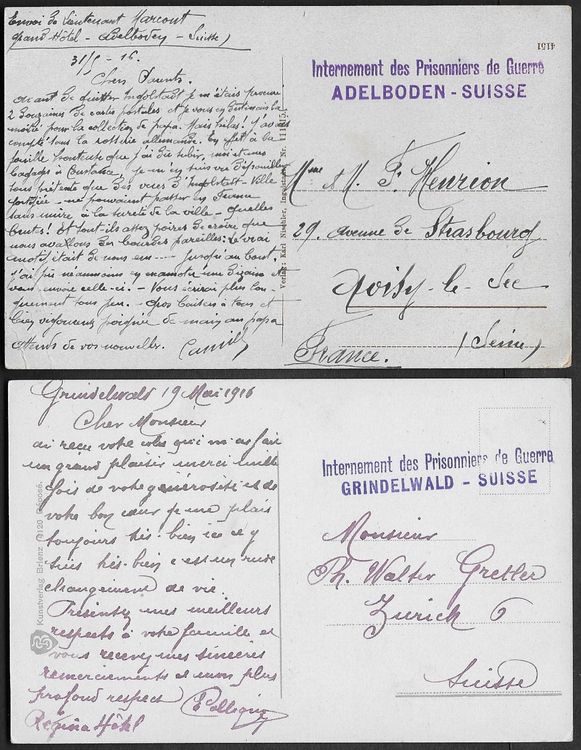 Envoi de Lieutenant Marcout
Grand-Hôtel - Adelboden - Suisse)
31/5 - 16.
Chers Parents.
avant de quitter Ingolstadt je m'étais procuré
2 douzaines de cartes postales et je vous en destinais la
moitié pour la collection de papa. Mais hélas! J'avais
compté sans la rosserie allemande. En effet à la
fouille que j'ai dû subir, moi et mes
bagages à Constance, je m'en suis vu dépouiller
sous prétexte que des vues d'Ingolstadt - Ville
fortifiée - ne pouvaient passer en France
sans nuire à la sureté de la ville - quelles
brutes! Et sont ils assez poires de croire que
nous avallons des bourdes pareilles: Le vrai
motif était de nous em---- jusqu'au bout.
J'ai pu néanmoins en une dizaine et
vous envoie celle-ci. - Vous écrirai plus lon-
guement sous peu. - Gros baisers à tous et
bien vigoureuse poignée de main au papa
Attends de vos nouvelles. Camille
Verlag: Karl Nischler, Ingolstadt. Nr. 111815
4151
Internement des Prisonniers de Guerre
ADELBODEN - SUISSE
Mme & M. F. Henrion
29. avenue de Strasbourg
Noisy-le-Sec
(Seine)
France.
Grindelwald 19 Mai 1916
Cher Monsieur
ai reçu votre colis qui m'as fait
un grand plaisir merci mille
fois de votre générosité et de
votre bon cœur je me plais
toujours très-bien ici et y
suis très-bien c'est un rude
changement de vie.
Présentez mes meilleurs
respects à votre famille et
vous recevez mes sincères
remerciements et mon plus
profond respect
Pellegrin
Regina Hôtel
Kunstverlag Brienz
Internement des Prisonniers de Guerre
GRINDELWALD - SUISSE
Monsieur
Th. Walter Gretler
Zurich 6
Suisse